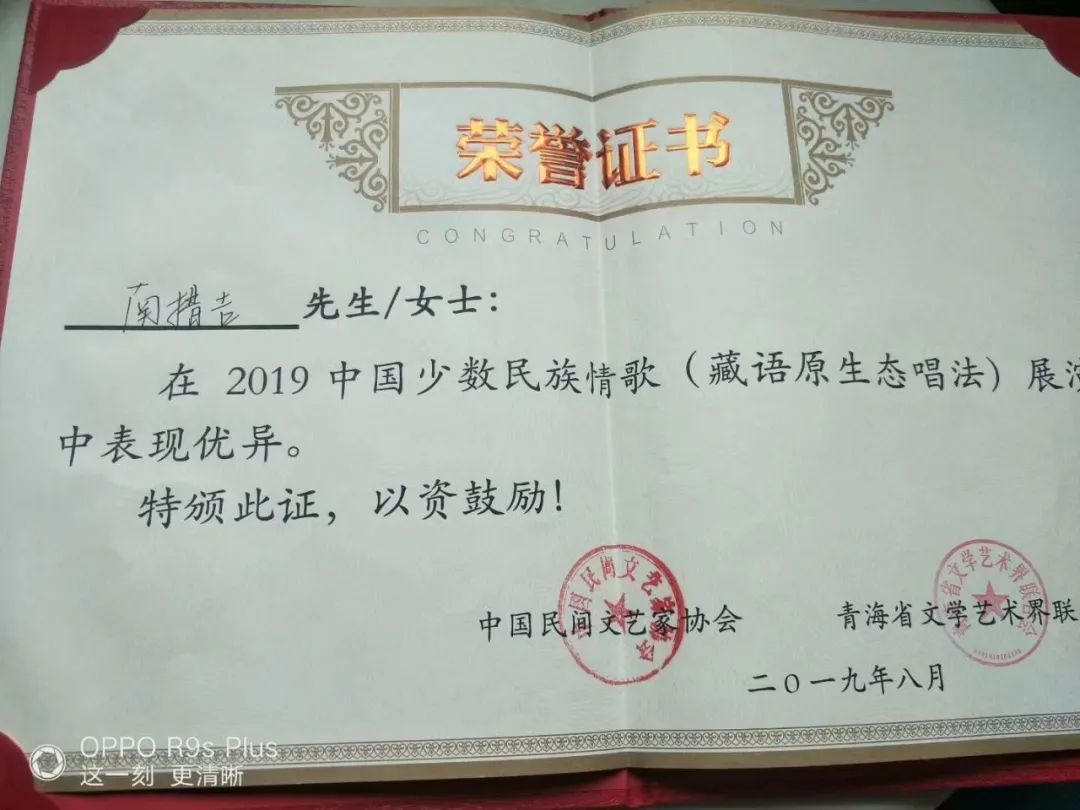 荣誉证书
CONGRATULATION
南措吉 先生/女士：
在 2019 中国少数民族情歌（藏语原生态唱法）展演
中表现优异。
特颁此证，以资鼓励！
中国民间文艺家协会 青海省文学艺术界联
二〇一九年八月
OPPO R9s Plus
这一刻 更清晰